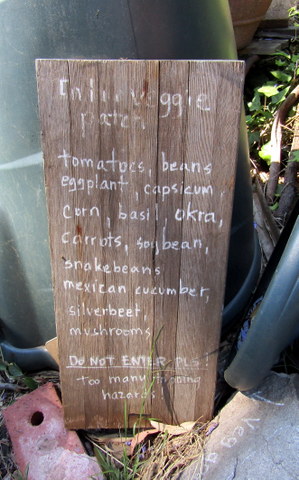 veggie
patch
tomatoes, beans
eggplant, capsicum,
corn, basil, okra,
carrots, soybean,
snakebeans
mexican cucumber,
silverbeet,
mushrooms
DO NOT ENTER PLS!
too many tripping
hazards!